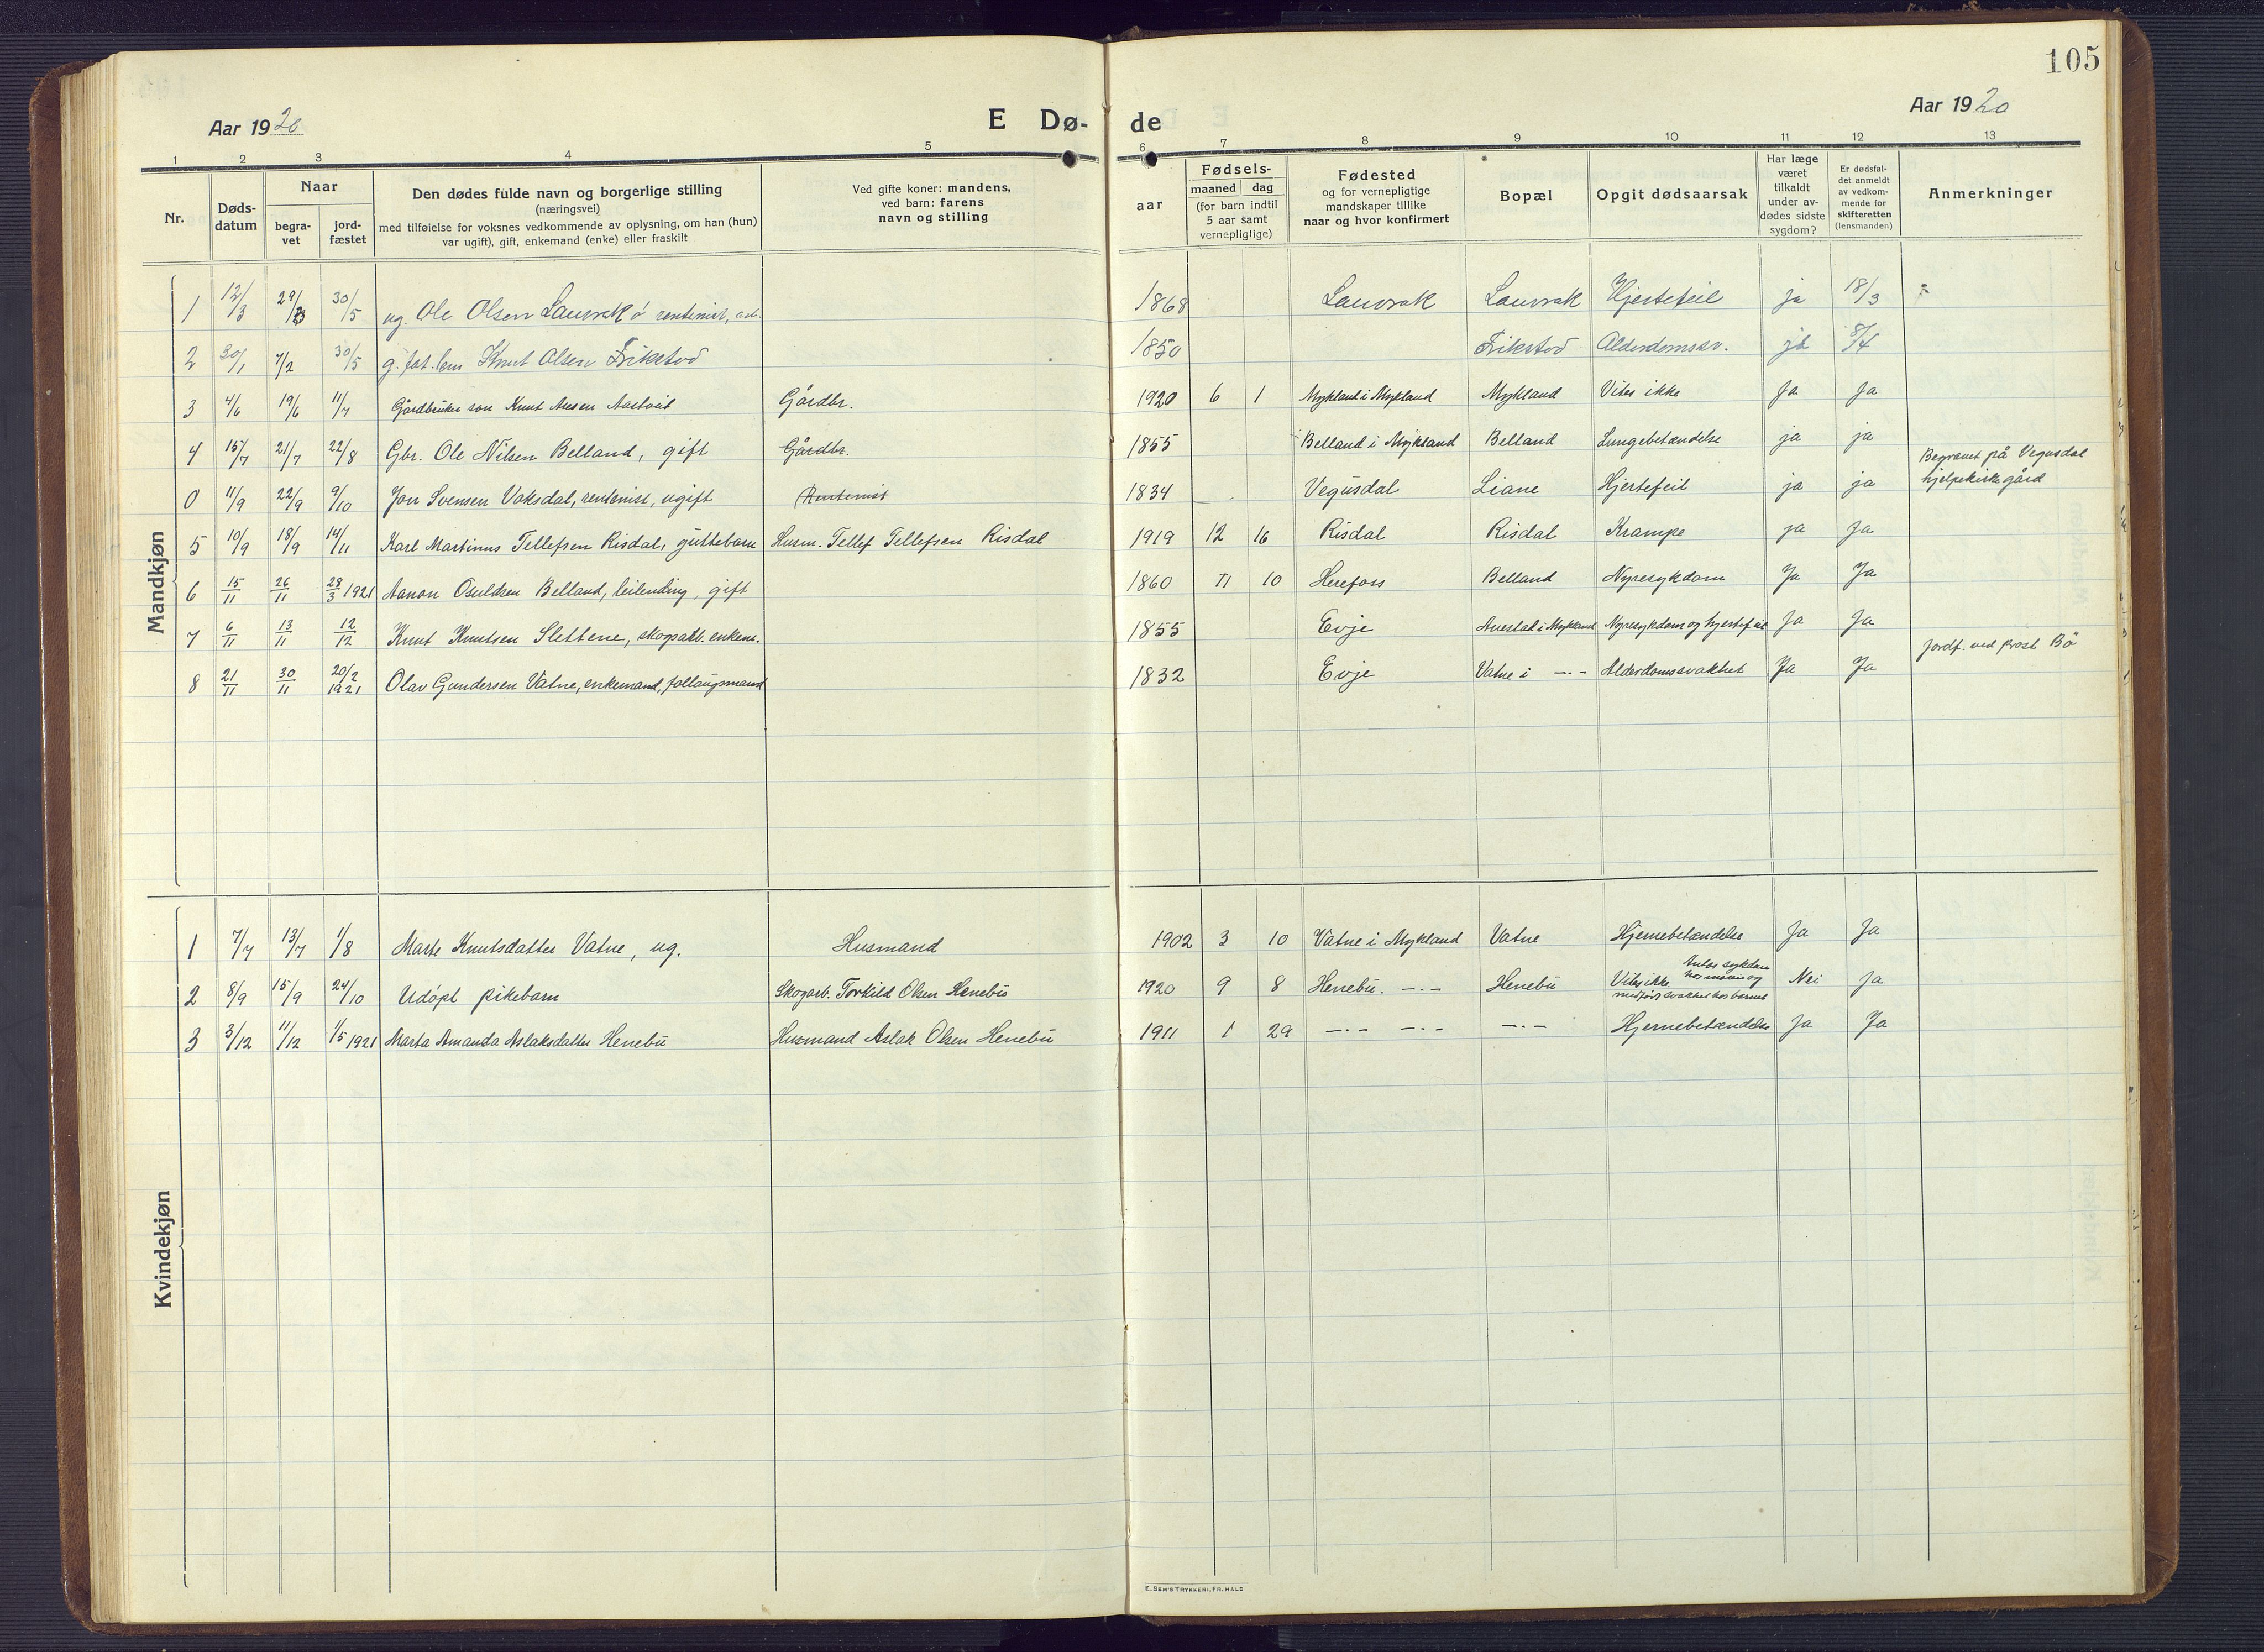 105
Aar 1920
E Dø-
de
Aar 1920
1 2 3 4 5 6 7 8 9 10 11 12 13
Nr.
Døds-
datum
Naar
begra-
vet
jord-
fæstet
Den dødes fulde navn og borgerlige stilling
(næringsvei)
med tilføielse for voksnes vedkommende av oplysning, om han (hun)
var ugift), gift, enkemand (enke) eller fraskilt
Ved gifte koner: mandens,
ved barn: farens
navn og stilling
aar
Fødsels-
maaned dag
(for barn indtil
5 aar samt
vernepligtige)
Fødested
og for vernepligtige
mandskaper tillike
naar og hvor konfirmert
Bopæl
Opgit dødsaarsak
Har læge
været
tilkaldt
under av-
dødes sidste
sygdom?
Er dødsfal-
det anmeldt
av vedkom-
mende for
skifteretten
(lensmanden)
Anmerkninger
Mandkjøn
1 12/3 29/3 30/5 ug. Ole Olsen Lauvrak rentenist, 1868 Lauvrak Lauvrak Hjertefeil ja 18/3
2 30/1 7/2 30/5 g. fat. lem Knut Olsen Frikstod 1850 Frikstod Alderdomssv. ja 8/4
3 4/6 19/6 11/7 Gårdbruker son Knut Aasen Gårdbr. 1920 6 1 Mykland i Mykland Mykland Vites ikke Ja Ja
4 15/7 21/7 22/8 Gbr. Ole Nilsen Belland, gift Gårdbr. 1855 Belland i Mykland Belland Lungebetændelse ja ja
0 11/9 22/9 9/10 Jon Svensen Voksdal, rentenist, ugift Rentenist 1834 Vegusdal Liane Hjertefeil ja ja Begravet på Vegusdal
hjelpekirkegård
5 10/9 18/9 14/11 Karl Martinus Tellefsen Risdal, guttebarn Husm. Tellef Tellefsen Risdal 1919 12 16 Risdal Risdal Krampe ja Ja
6 15/11 26/11 28/3 1921 Aanon Osuldsen Belland, leilending, gift 1860 11 10 Herefoss Belland Nyresykdom Ja Ja
7 6/11 13/11 12/12 Knut Knutsen Slettene, skogsarb. enkem. 1855 Evje i Mykland Nyresykdom og hjertefeil Ja Ja
8 21/11 30/11 20/2 1921 Olav Gundersen Vatne, enkemand, follaugsmand 1832 Evje Vatne i -.- Alderdomssvakhet Ja Ja Jordf. ved prost Bö
Kvindekjøn
1 7/7 13/7 1/8 Marte Knutsdatter Vatne, ug. Husmand 1902 3 10 Vatne i Mykland Vatne Hjernebetændelse Ja Ja
2 8/9 15/9 24/10 Udöpt pikebarn Skogarb. Torkild Olsen Henebu 1920 9 8 Henebu. -.- Henebu Vites ikke. Antas sykdom
hos moren og
medfödt svakhet hos barnet Nei Ja
3 3/12 11/12 1/5 1921 Marta Amanda Aslaksdatter Henebu Husmand Aslak Olsen Henebu 1911 1 29 -.- -.- -.- Hjernebetændelse Ja Ja
E. SEM'S TRYKKERI, FR. HALD